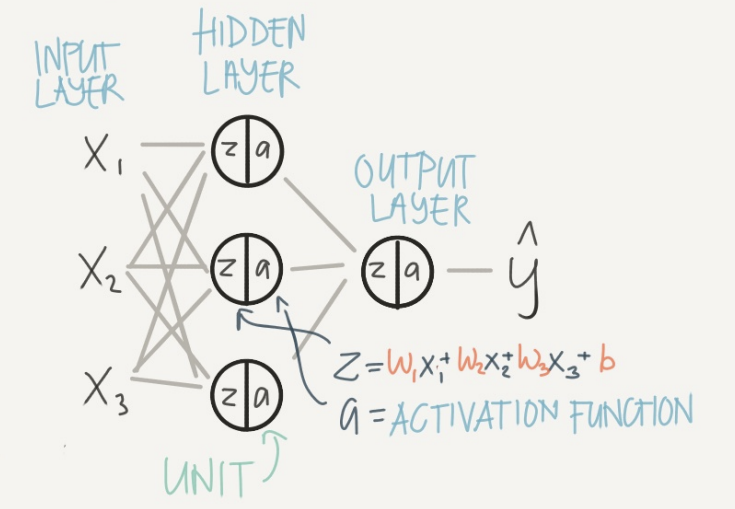 INPUT
LAYER
HIDDEN
LAYER
OUTPUT
LAYER
X₁
X₂
X₃
z a
z a
z a
z a
ŷ
z = W₁x₁ + W₂x₂ + W₃x₃ + b
a = ACTIVATION FUNCTION
UNIT